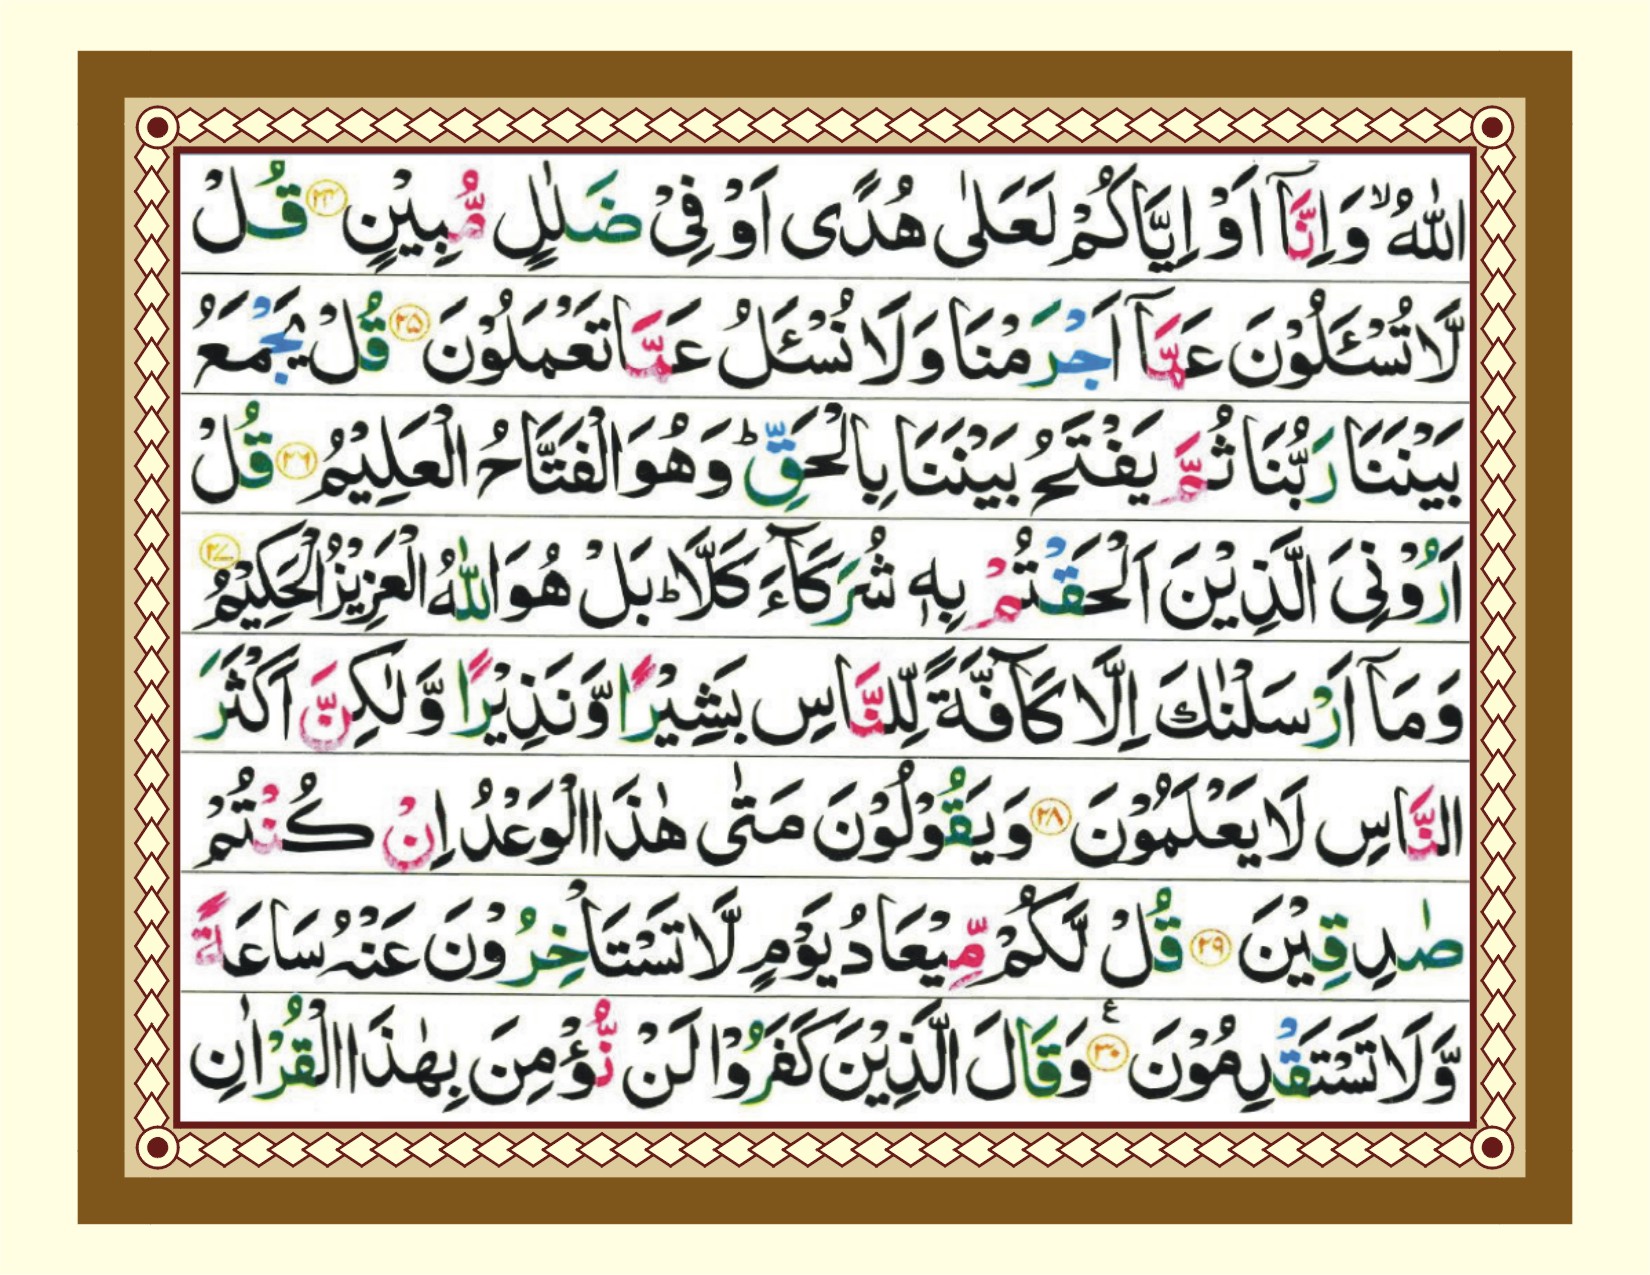 اللّٰهُ ۙ وَاِنَّاۤ اَوْ اِيَّاكُمْ لَعَلٰى هُدًى اَوْ فِىْ ضَلٰلٍ مُّبِيْنٍ ۲۴ قُلْ
لَّا تُسْـَٔلُوْنَ عَمَّاۤ اَجْرَمْنَا وَلَا نُسْـَٔلُ عَمَّا تَعْمَلُوْنَ ۲۵ قُلْ يَجْمَعُ
بَيْنَنَا رَبُّنَا ثُمَّ يَفْتَحُ بَيْنَنَا بِالْحَقِّ ؕ وَهُوَ الْفَتَّاحُ الْعَلِيْمُ ۲۶ قُلْ
اَرُوْنِىَ الَّذِيْنَ اَلْحَقْتُمْ بِهٖ شُرَكَآءَ كَلَّا ؕ بَلْ هُوَ اللّٰهُ الْعَزِيْزُ الْحَكِيْمُ ۲۷
وَمَاۤ اَرْسَلْنٰكَ اِلَّا كَآفَّةً لِّلنَّاسِ بَشِيْرًا وَّنَذِيْرًا وَّلٰكِنَّ اَكْثَرَ
النَّاسِ لَا يَعْلَمُوْنَ ۲۸ وَيَقُوْلُوْنَ مَتٰى هٰذَا الْوَعْدُ اِنْ كُنْتُمْ
صٰدِقِيْنَ ۲۹ قُلْ لَّكُمْ مِّيْعَادُ يَوْمٍ لَّا تَسْتَاْخِرُوْنَ عَنْهُ سَاعَةً
وَّلَا تَسْتَقْدِمُوْنَ ۳۰ ع وَقَالَ الَّذِيْنَ كَفَرُوْا لَنْ نُّؤْمِنَ بِهٰذَا الْقُرْاٰنِ